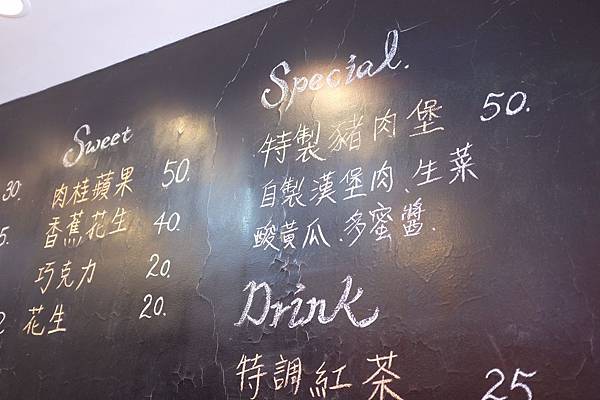 Sweet
30. 肉桂蘋果 50.
5. 香蕉花生 40.
巧克力 20.
花生 20.
Special.
特製豬肉堡 50.
自製漢堡肉、生菜
酸黃瓜、多蜜醬.
Drink
特調紅茶 25